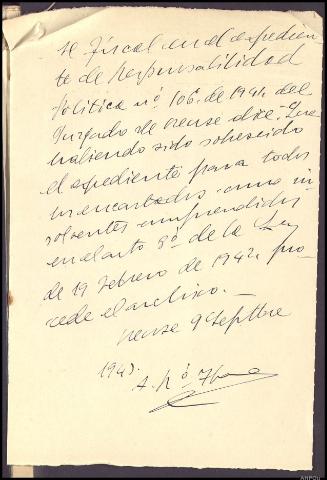 El Fiscal en el expedien-
te de responsabilidad
política nº 106 de 1941 del
Juzgado de Orense dice: Que
habiendo sido sobreseido
el expediente para todos
los encartados como in-
solventes comprendidos
en el artº 8º de la Ley
de 19 Febrero de 1942, pro-
cede el archivo.—
Orense 9 Septbre
1943.